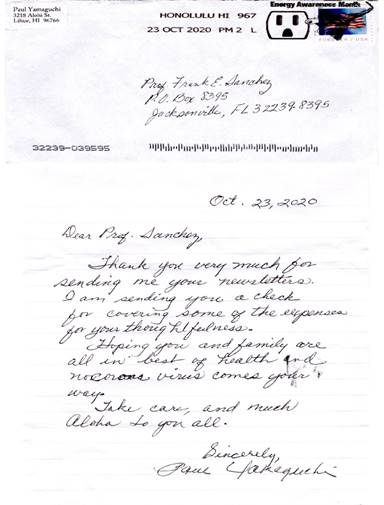 Paul Yamaguchi
3218 Alohi St.
Lihue, HI 96766
HONOLULU HI 967
23 OCT 2020 PM 2 L
Energy Awareness Month
Prof Frank E. Sanchez
P.O. Box 8395
Jacksonville, FL 32239-8395
32239-039595
Oct. 23, 2020
Dear Prof. Sanchez,
Thank you very much for
sending me your newsletters.
I am sending you a check
for covering some of the expenses
for your thoughtfulness.
Hoping you and family are
all in best of health and
no corona virus comes your
way.
Take care, and much
Aloha to you all.
Sincerely,
Paul Yamaguchi